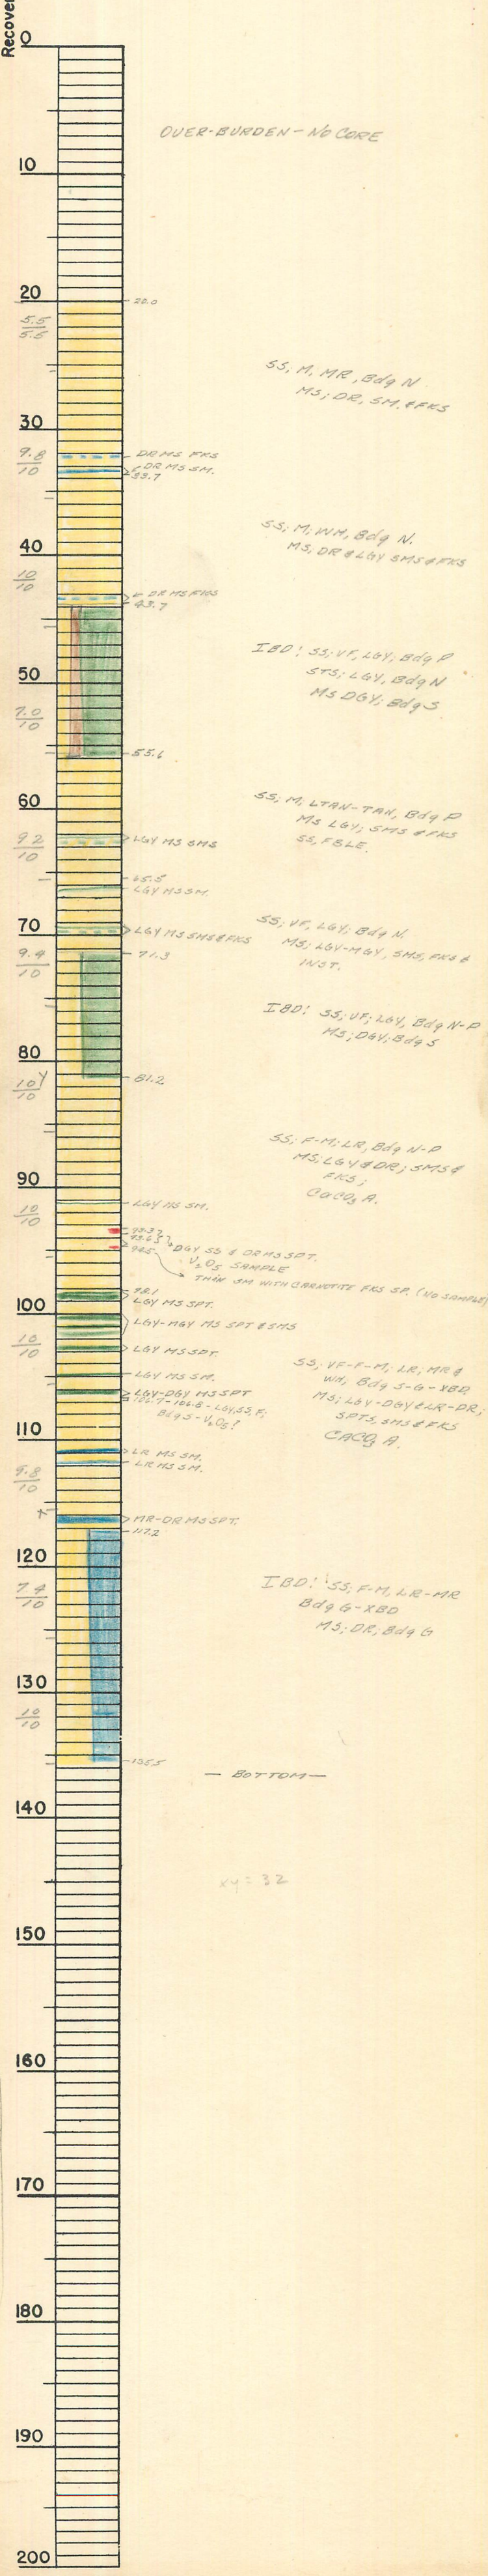 Recover
0
OVER-BURDEN - NO CORE
10
20
20.0
5.5
5.5
SS, M, MR, Bdg N
MS; DR, SM. & FKS
30
9.8
10
DR MS FKS
DR MS SM.
33.7
SS; M; WH, Bdg N.
MS, DR & LGY SMS & FKS
40
10
10
DR MS FKS
43.7
IBD! SS; VF, LGY; Bdg P
STS; LGY, Bdg N
MS DGY; Bdg S
50
7.0
10
55.6
60
SS, M; LTAN-TAN, Bdg P
MS LGY; SMS & FKS
SS, FBLE.
9.2
10
LGY MS SMS
65.5
LGY MS SM.
70
LGY MS SMS & FKS
SS; VF, LGY; Bdg N.
MS; LGY-MGY, SMS, FKS &
INST.
9.4
10
71.3
IBD! SS; VF; LGY, Bdg N-P
MS; DGY; Bdg S
80
10
10
81.2
SS, F-M; LR, Bdg N-P
MS; LGY & DR; SMS &
FKS;
CaCO3 A.
90
10
10
LGY MS SM.
93.3
94.5
DGY SS & DR MS SPT.
V2O5 SAMPLE
THIN SM WITH CARNOTITE FKS SP. (NO SAMPLE)
98.1
LGY MS SPT.
100
LGY-MGY MS SPT & SMS
10
10
LGY MS SPT.
LGY MS SM.
SS; VF-F-M; LR, MR &
WH, Bdg S-G-XBD
MS; LGY-DGY & LR-DR;
SPTS, SMS & FKS
CACO3 A.
LGY-DGY MS SPT
106.7-106.8 - LGY, SS, F;
Bdg S - V2O5?
110
LR MS SM.
LR MS SM.
9.8
10
MR-DR MS SPT.
117.2
120
7.4
10
IBD! SS; F-M, LR-MR
Bdg G-XBD
MS; DR, Bdg G
130
10
10
135.5
— BOTTOM —
140
xy = 32
150
160
170
180
190
200